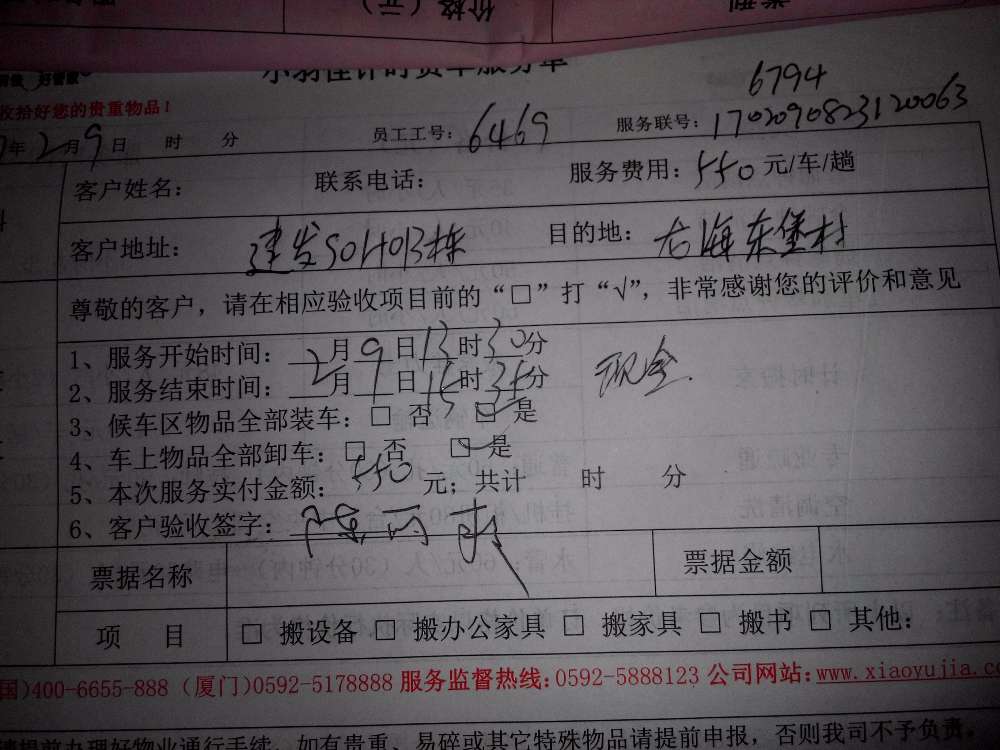 价格（元）
小羽佳计时货车服务单
收拾好您的贵重物品！
6794
年2月9日 时 分 员工工号：6469 服务联号：1702090823120063
客户姓名： 联系电话： 服务费用：550元/车/趟
客户地址：建发SOHOB栋 目的地：古海东堡村
尊敬的客户，请在相应验收项目前的“□”打“√”，非常感谢您的评价和意见
1、服务开始时间：2月9日13时30分
2、服务结束时间：2月9日15时35分 现金.
3、候车区物品全部装车：□ 否 ☑ 是
4、车上物品全部卸车：□ 否 ☑ 是
5、本次服务实付金额：550元；共计 时 分
6、客户验收签字：
票据名称 票据金额
项 目 □ 搬设备 □ 搬办公家具 □ 搬家具 □ 搬书 □ 其他：
国)400-6655-888 (厦门)0592-5178888 服务监督热线：0592-5888123 公司网站：www.xiaoyujia.c
提前办理好物业通行手续，如有贵重、易碎或其它特殊物品请提前申报，否则我司不予负责。